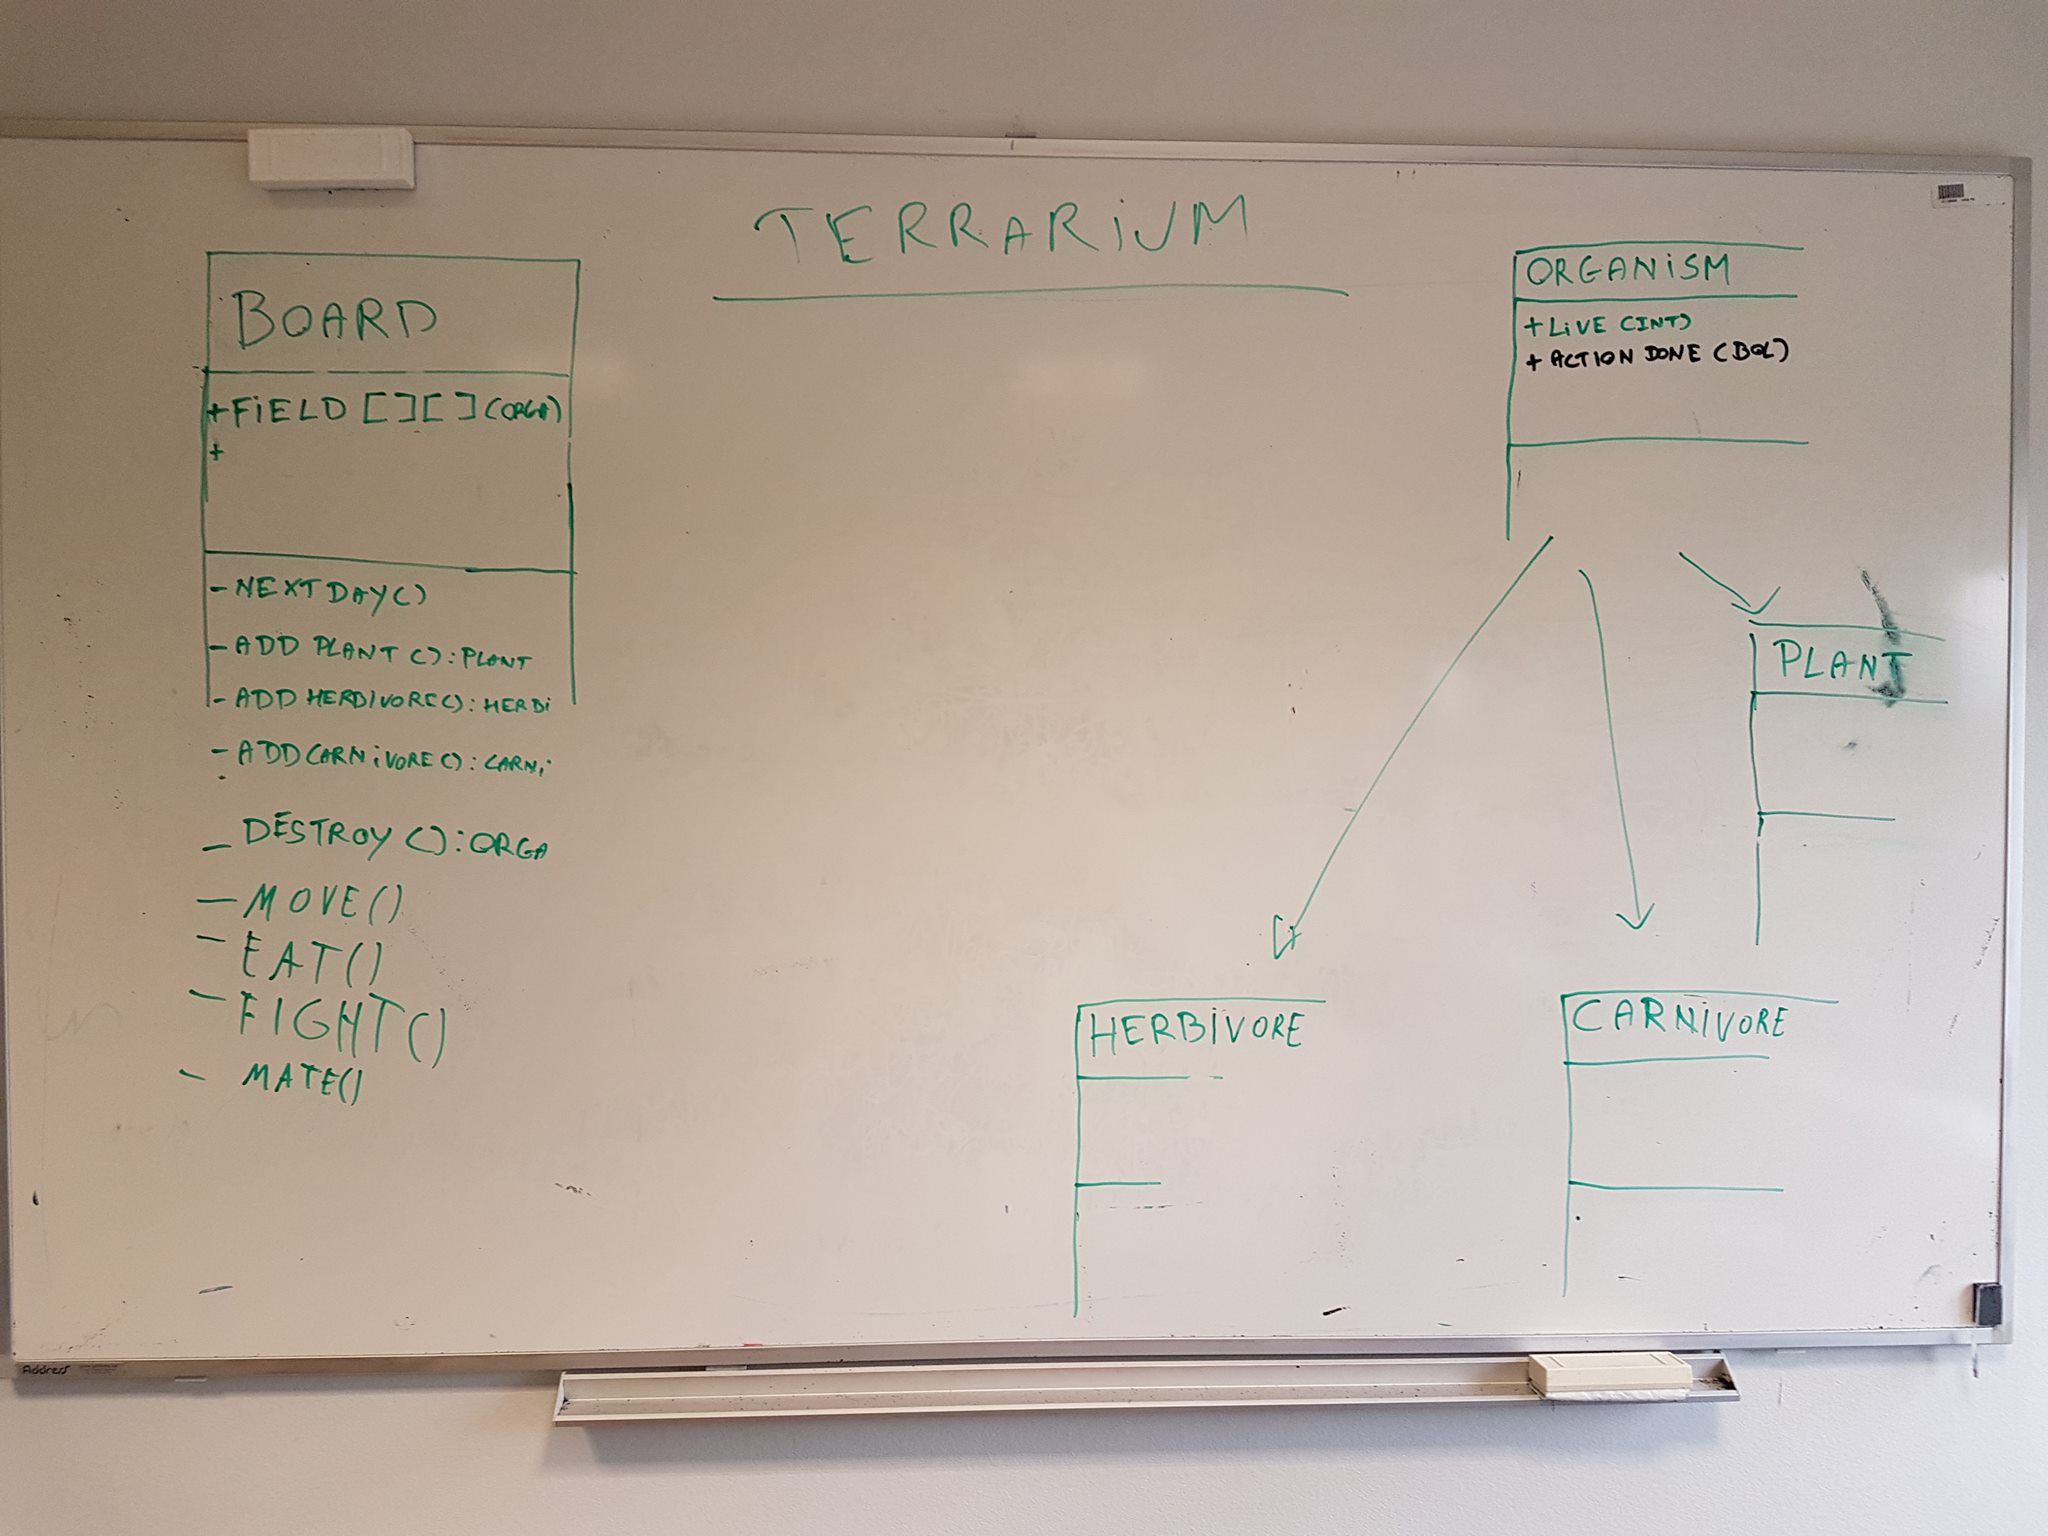 TERRARiUM
BOARD
+FiELD [][] (ORGA)
+
- NEXT DAY()
- ADD PLANT (): PLANT
- ADD HERDIVORE(): HERDi
- ADD CARNiVORE(): CARNi
- DESTROY (): ORGA
- MOVE()
- EAT()
- FIGHT()
- MATE()
ORGANiSM
+ LiVE (INT)
+ ACTION DONE (BOL)
PLANT
HERBiVORE
CARNiVORE
Address